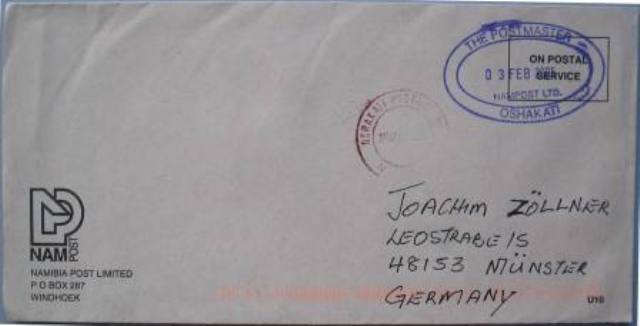 THE POSTMASTER
ON POSTAL
SERVICE
03 FEB
NAMPOST LTD.
OSHAKATI
OSHAKATI
JOACHIM ZÖLLNER
LEOSTRAßE 15
48153 MÜNSTER
GERMANY
NAM
POST
NAMIBIA POST LIMITED
P O BOX 287
WINDHOEK
U10